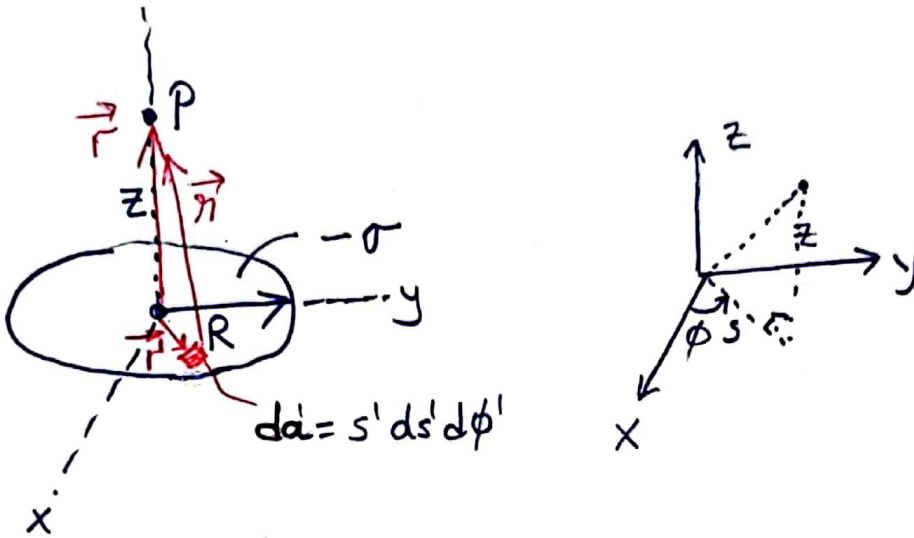 P
r⃗
z
𝓇⃗
-σ
y
R
r⃗'
da' = s' ds' dϕ'
x
z
z
y
ϕ s
x